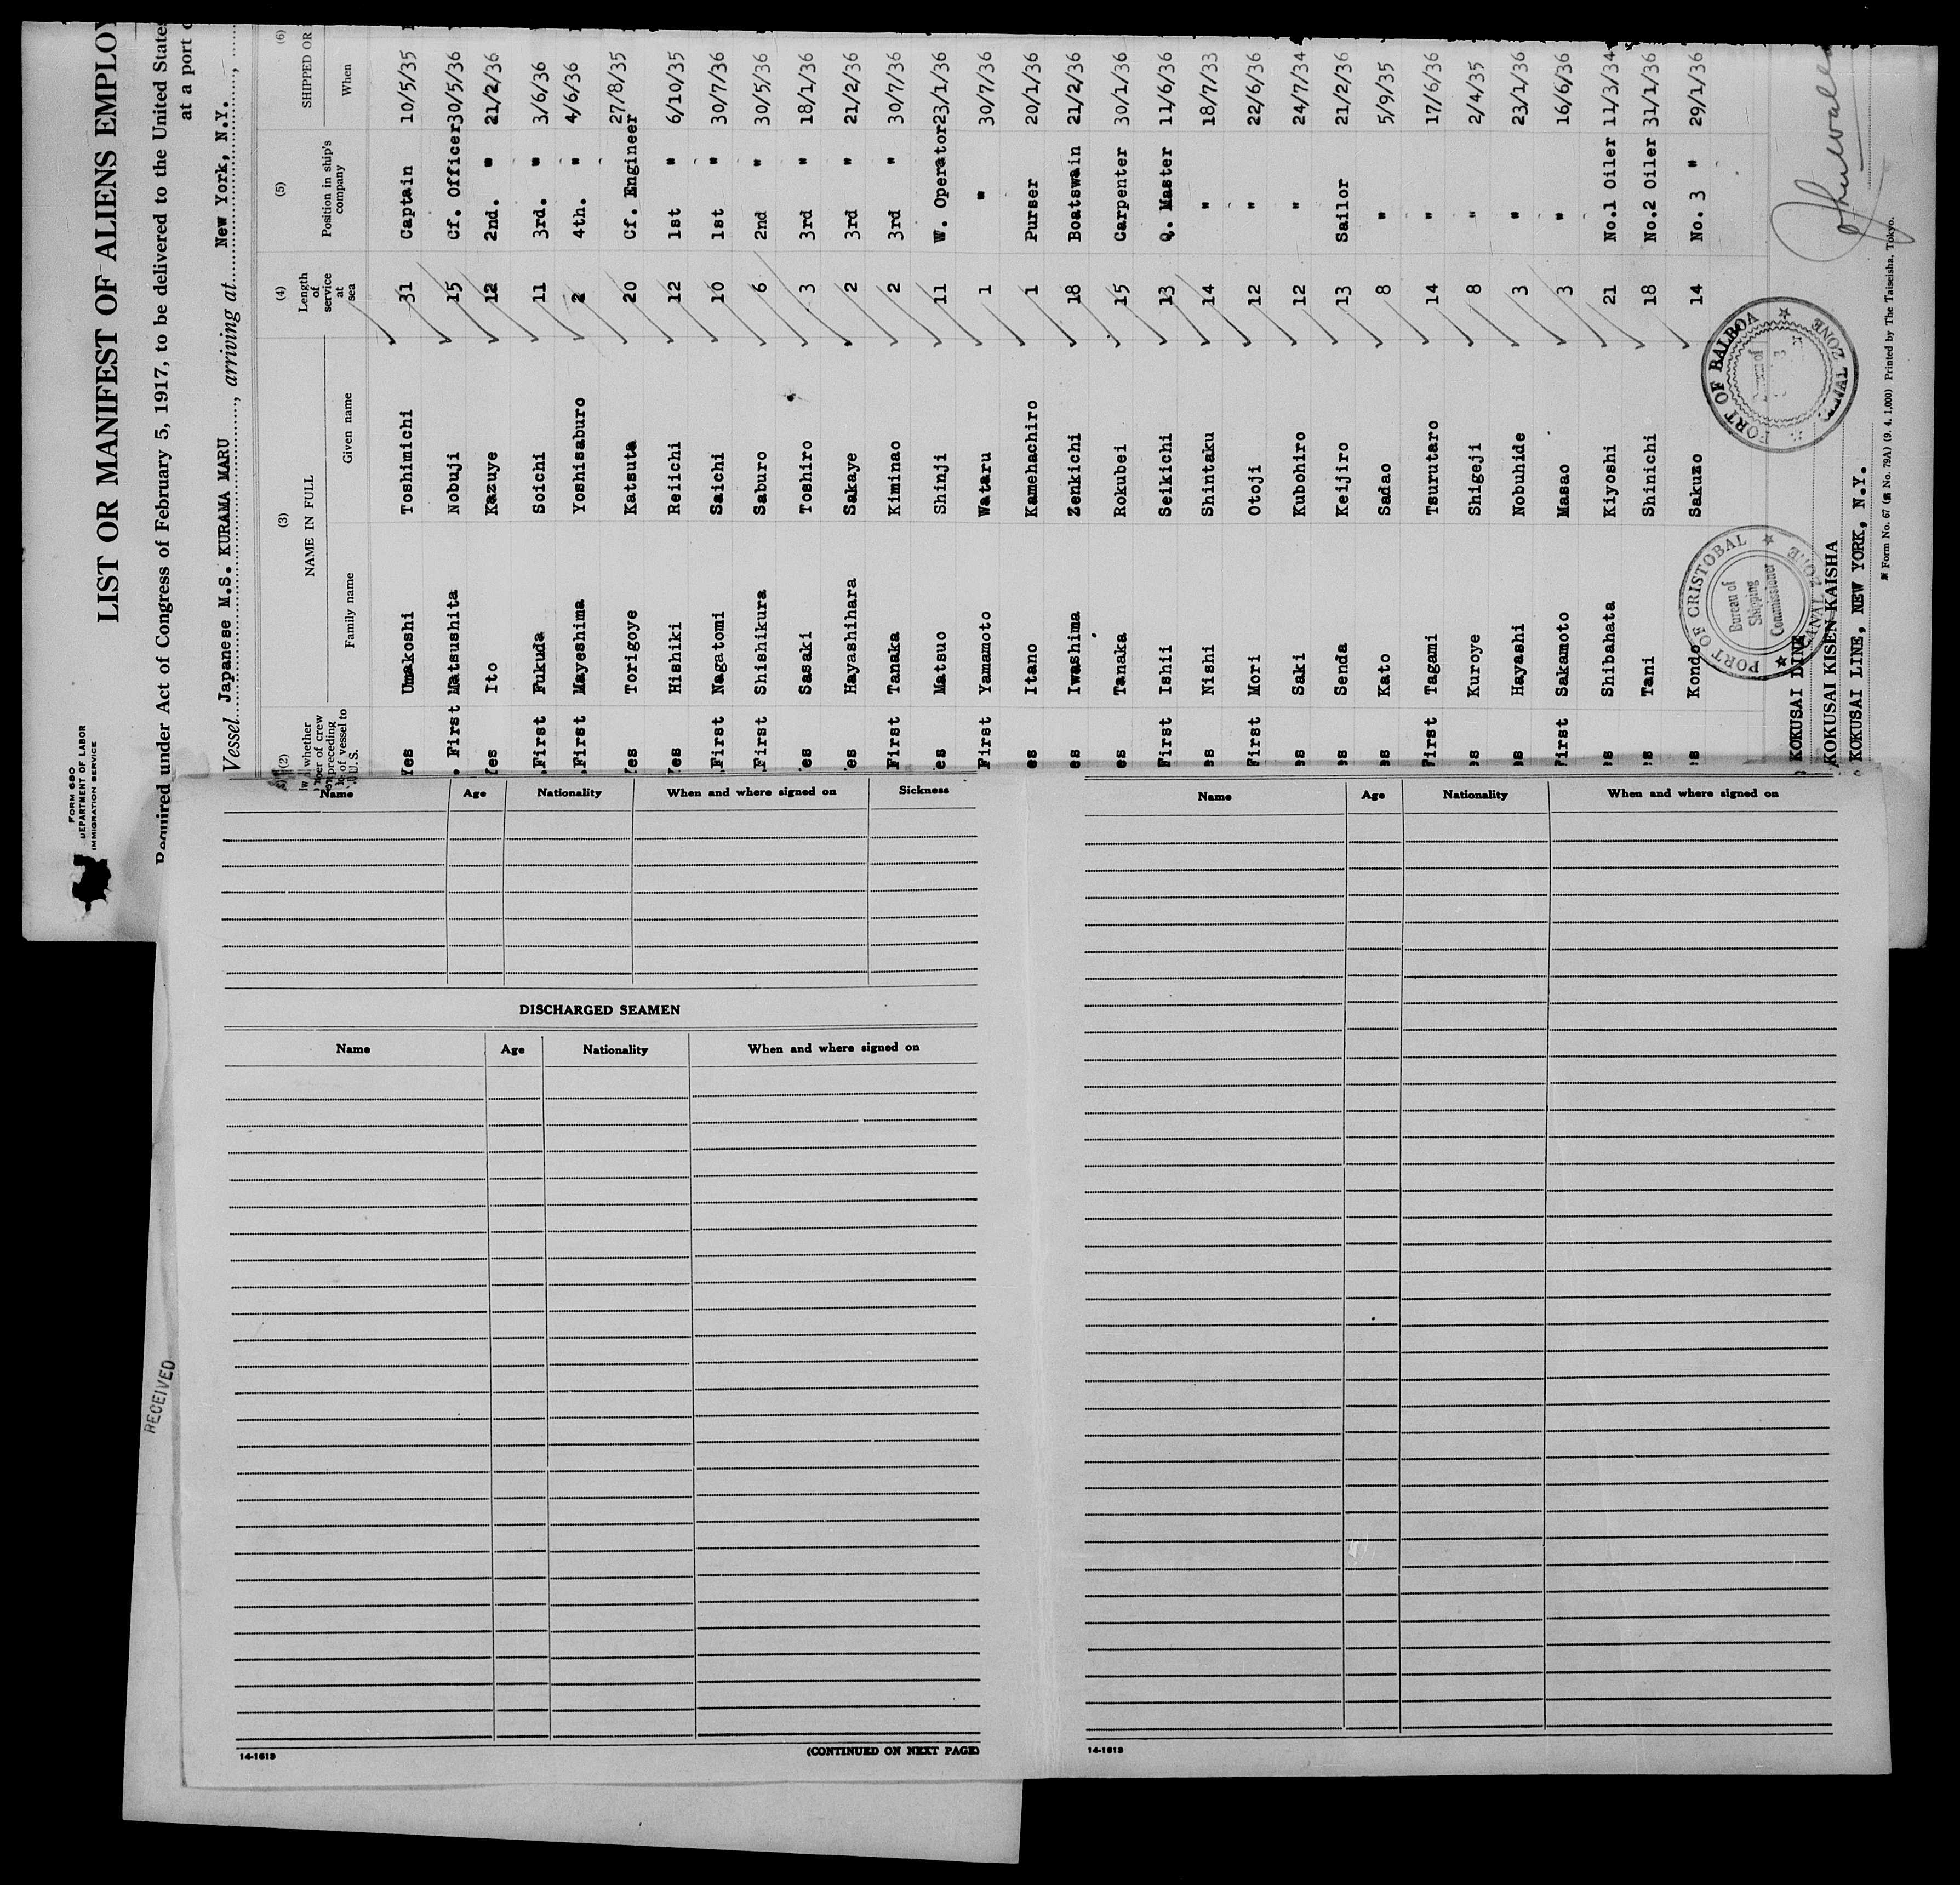 FORM 680
DEPARTMENT OF LABOR
IMMIGRATION SERVICE
LIST OR MANIFEST OF ALIENS EMPLOY
Required under Act of Congress of February 5, 1917, to be delivered to the United States
at a port o
Vessel Japanese M.S. KURAMA MARU, arriving at New York, N.Y.
(2) (3) (4) (5) (6)
NAME IN FULL Length of service at sea Position in ship's company SHIPPED OR
Family name Given name When
Yes Umakoshi Toshimichi 31 Captain 10/5/35
First Matsushita Nobuji 15 Cf. Officer 30/5/36
Yes Ito Kazuye 12 2nd. " 21/2/36
First Fukuda Soichi 11 3rd. " 3/6/36
First Mayeshima Yoshisaburo 2 4th. " 4/6/36
Yes Torigoye Katsuta 20 Cf. Engineer 27/8/35
Yes Hishiki Reiichi 12 1st " 6/10/35
First Nagatomi Saichi 10 1st " 30/7/36
First Shishikura Saburo 6 2nd " 30/5/36
es Sasaki Toshiro 3 3rd " 18/1/36
es Hayashihara Sakaye 2 3rd " 21/2/36
First Tanaka Kiminao 2 3rd " 30/7/36
es Matsuo Shinji 11 W. Operator 23/1/36
First Yamamoto Wataru 1 " 30/7/36
es Itano Kamehachiro 1 Purser 20/1/36
es Iwashima Zenkichi 18 Boatswain 21/2/36
es Tanaka Rokubei 15 Carpenter 30/1/36
First Ishii Seikichi 13 Q. Master 11/6/36
es Nishi Shintaku 14 " 18/7/33
First Mori Otoji 12 " 22/6/36
es Saki Kubohiro 12 " 24/7/34
es Senda Keijiro 13 Sailor 21/2/36
es Kato Sadao 8 " 5/9/35
First Tagami Tsurutaro 14 " 17/6/36
es Kuroye Shigeji 8 " 2/4/35
es Hayashi Nobuhide 3 " 23/1/36
First Sakamoto Masao 3 " 16/6/36
es Shibahata Kiyoshi 21 No.1 Oiler 11/3/34
es Tani Shinichi 18 No.2 Oiler 31/1/36
es Kondo Sakuzo 14 No. 3 " 29/1/36
PORT OF CRISTOBAL
Bureau of
Shipping
Commissioner
CANAL ZONE
PORT OF BALBOA
CANAL ZONE
KOKUSAI LINE
KOKUSAI KISEN KAISHA
KOKUSAI LINE, NEW YORK, N.Y.
Form No. 67 (No. 79A) (9. 4. 1,000) Printed by The Taiseisha, Tokyo.
Name Age Nationality When and where signed on Sickness
DISCHARGED SEAMEN
Name Age Nationality When and where signed on
14-1613 (CONTINUED ON NEXT PAGE)
Name Age Nationality When and where signed on
14-1613
RECEIVED